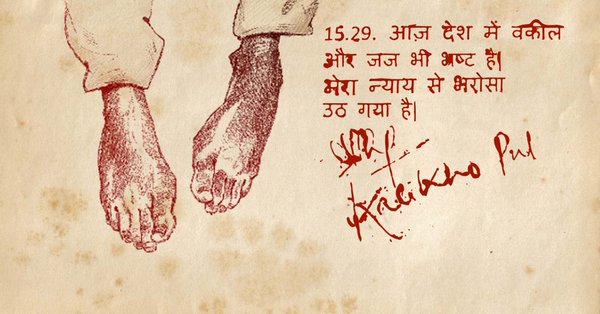 15.29. आज़ देश में वकील
और जज भी भ्रष्ट है।
मेरा न्याय से भरोसा
उठ गया है।
Kalikho Pul